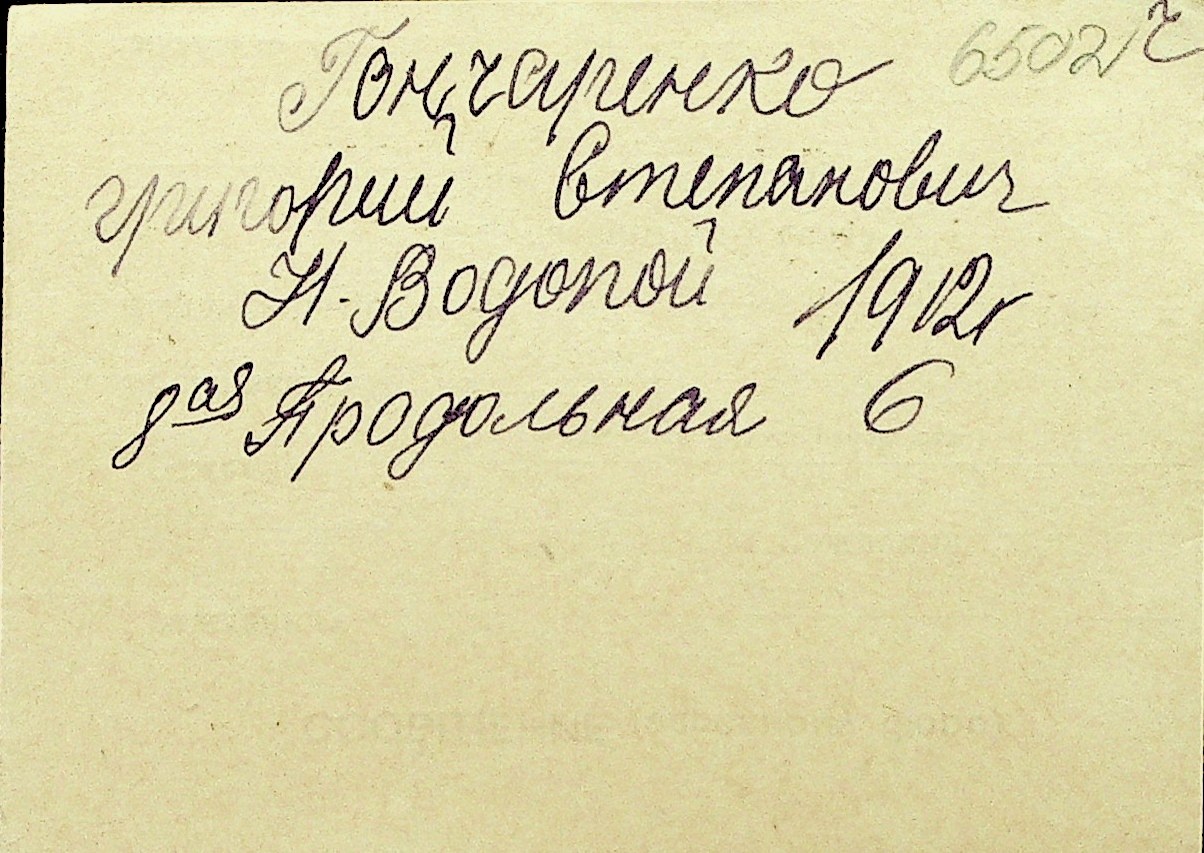 Гончаренко 6502 ч
Григорий Степанович
Н. Водопой 1912г
8ая Продольная 6